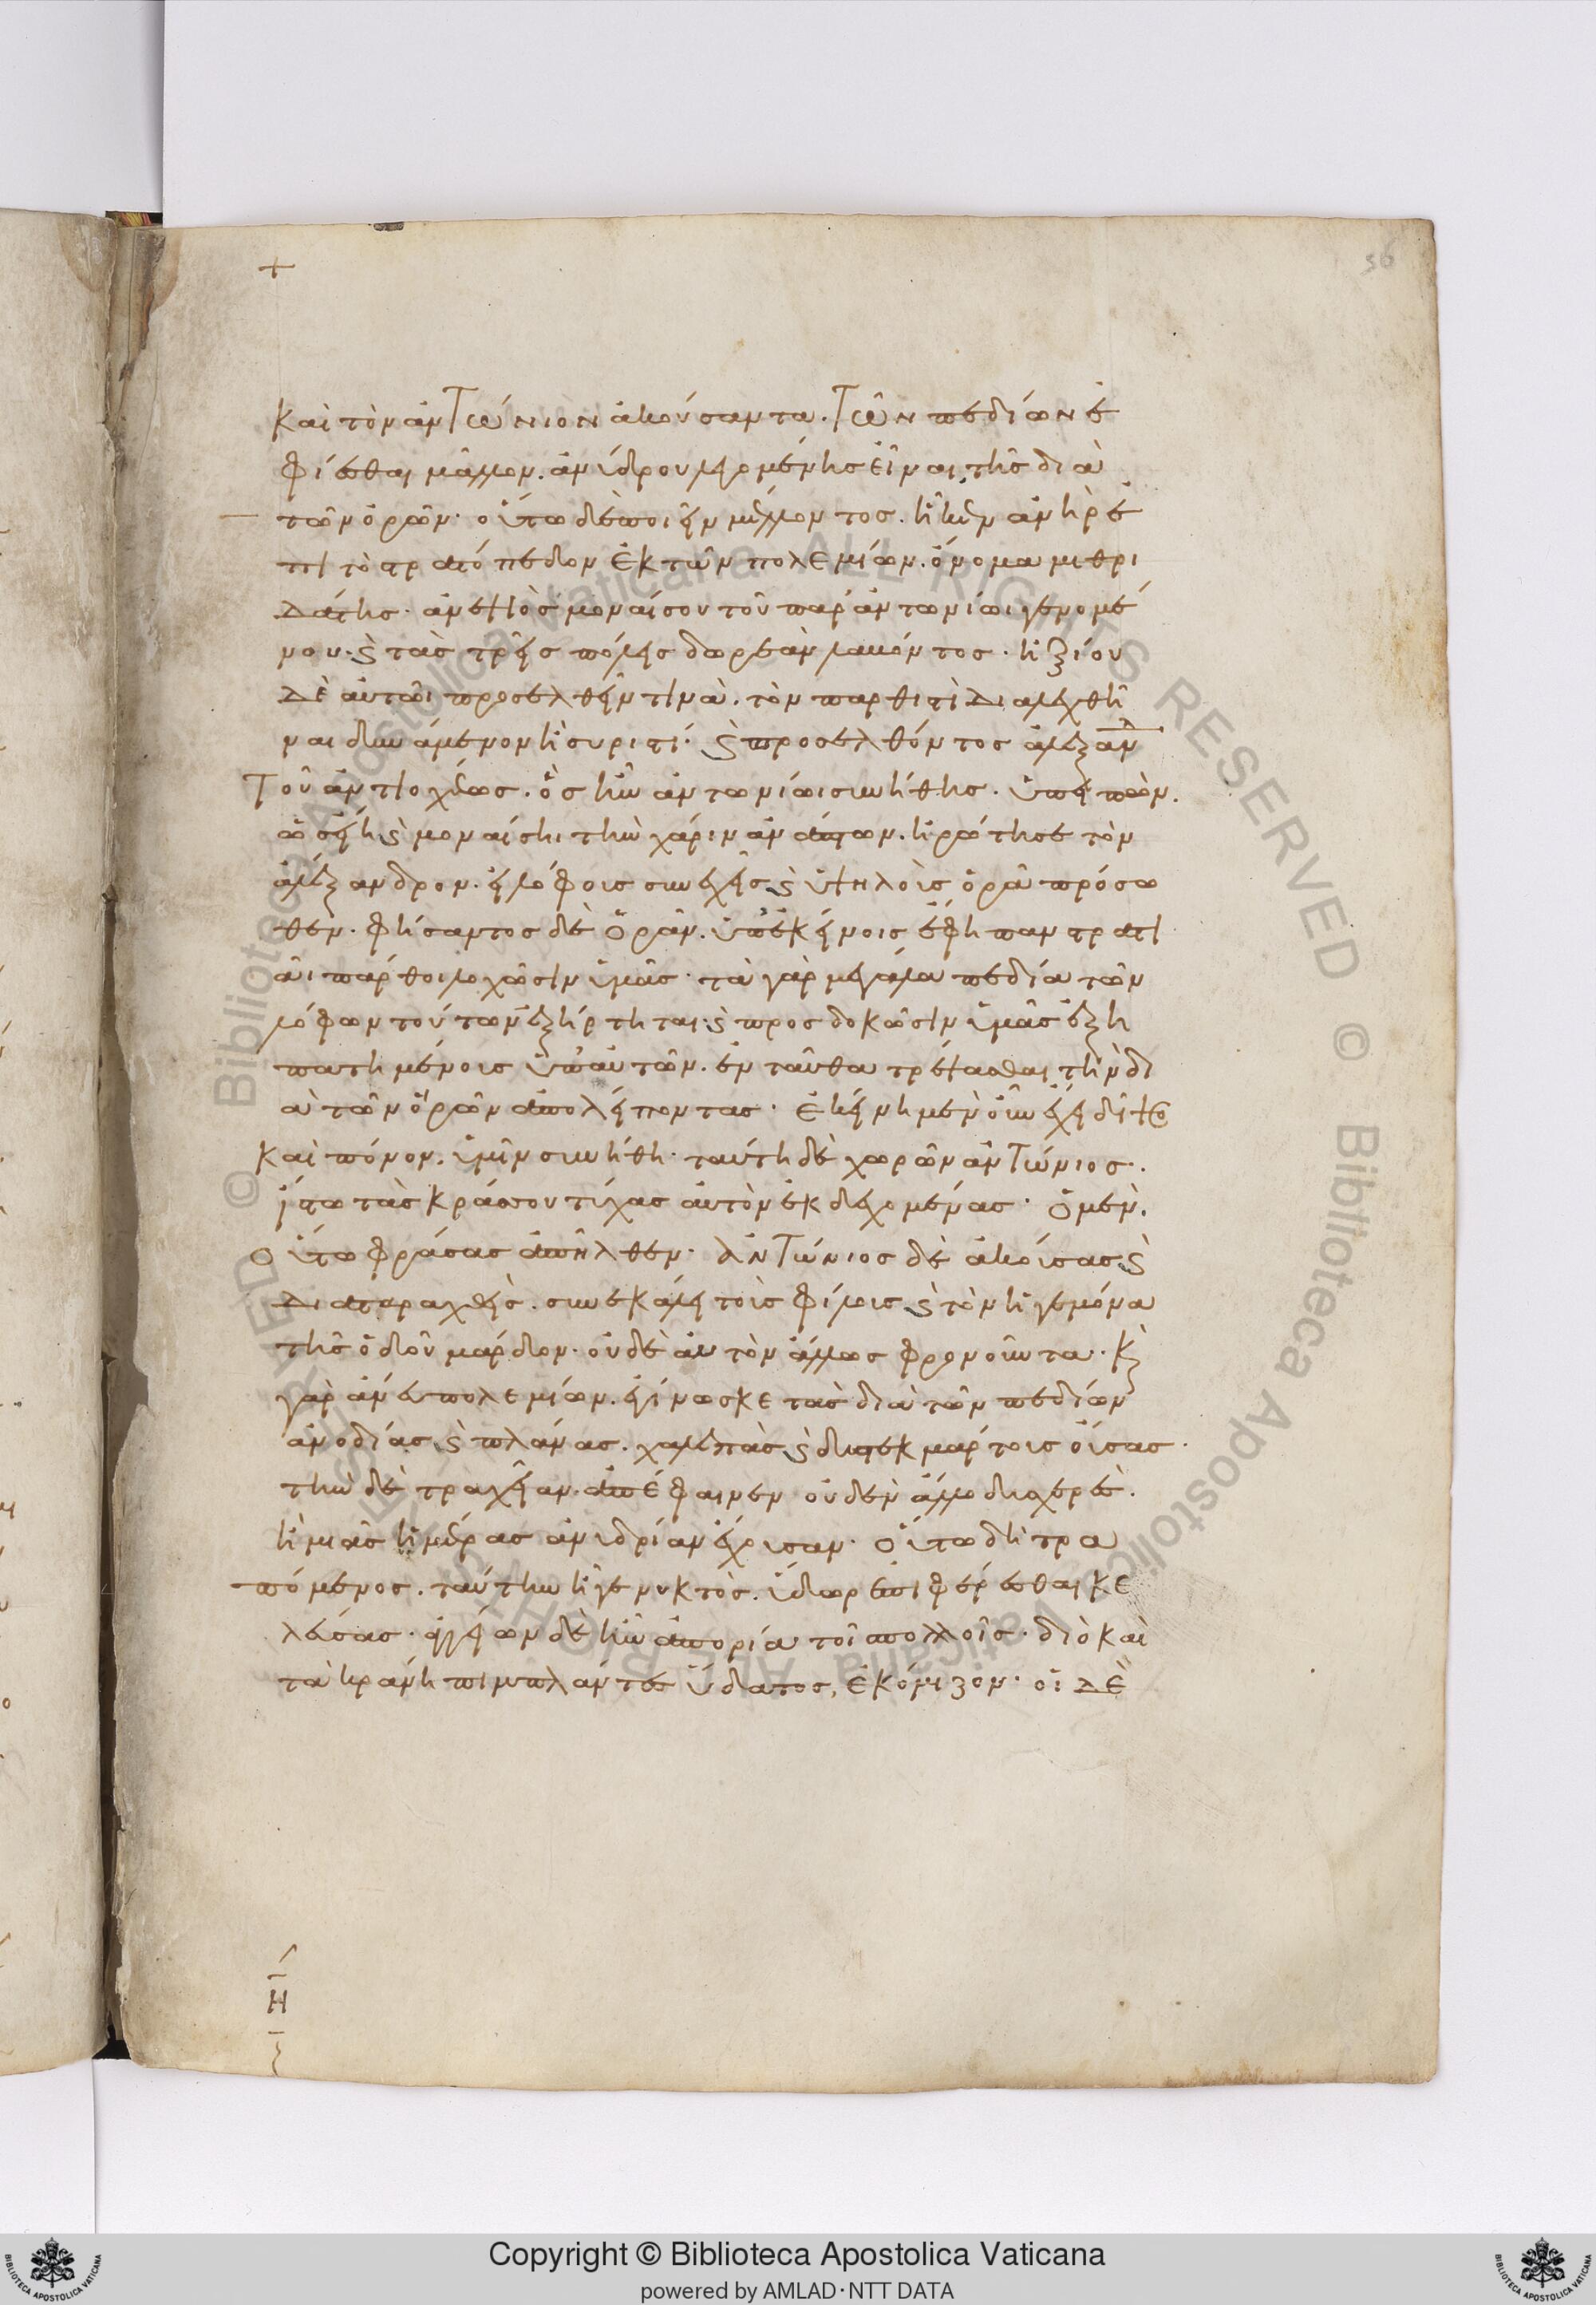 καὶ τὸν ἀντώνιον ἀκούσαντα. τῶν πεδίων ἐ
φίεσθαι μᾶλλον. ἀνύδρου λεγομένης εἶναι τῆς διὰ
τῶν ὀρῶν· οὕτω δὲ ποιεῖν μέλλοντος. ἧκεν ἀνὴρ ἐ
πὶ τὸ στρατόπεδον ἐκ τῶν πολεμίων. ὄνομα μιθρι
δάτης· ἀνεψιὸς μοναίσου τοῦ παρ' ἀντωνίωι γενομέ
νου· ϗ τὰς τρεῖς πόλεις δωρεὰν λαβόντος· ἠξίου
δὲ αὐτῶι προσελθεῖν τινὰ. τὸν παρθιστὶ διαλεχθῆ
ναι δυνάμενον ἢ συριστί· ϗ προσελθόντος ἀλεξάνδ
τοῦ ἀντιοχέως. ὃς ἦν ἀντωνίωι συνήθης. ὑπειπὼν.
ὡς εἴη ϗ μοναίσηι τὴν χάριν ἀνάπτων. ἠρώτησε τὸν
ἀλέξανδρον. εἰ λόφους συνεχεῖς ϗ ὑψηλοὺς ὁρᾶ πρόσω
θεν. φήσαντος δὲ ὁρᾶν. ὑπ' ἐκείνοις ἔφη πανστρατι
ᾶι πάρθοι λοχῶσιν ὑμᾶς· τὰ γὰρ μεγάλα πεδία τῶν
λόφων τούτων ἐξήρτηται· ϗ προσδοκῶσιν ὑμᾶς ἐξη
πατημένους ὑπ' αὐτῶν. ἐνταῦθα τρέψασθαι τὴν δι
ὰ τῶν ὀρῶν ἀπολείποντας· ἐκείνη μὲν οὖν ἔχει δίψος
καὶ πόνον. ὑμῖν συνήθη· ταύτη δὲ χωρῶν ἀντώνιος.
ἴστω τὰς κράσσου τύχας αὐτὸν ἐκδεχομένας· ὁ μὲν.
οὕτω φράσας ἀπῆλθεν· ἀντώνιος δὲ ἀκούσας ϗ
διαταραχθεὶς. συνεκάλει τοὺς φίλους ϗ τὸν ἡγεμόνα
τῆς ὁδοῦ μάρδον· οὐδὲ αὐτὸν ἄλλως φρονοῦντα· κ
γὰρ ἄνευ πολεμίων. ἐγίνωσκε τὰς διὰ τῶν πεδίων
ἀνοδίας ϗ πλάνας. χαλεπὰς ϗ δυστεκμάρτους οὔσας·
τὴν δὲ τραχεῖαν. ἀπέφαινεν οὐδὲν ἄλλο δυσχερὲς.
ἢ μιᾶς ἡμέρας ἀνυδρίαν ἔχουσαν· οὕτω δὴ τρα
πόμενος. ταύτην ἦγε νυκτὸς. ὕδωρ ἐπιφέρεσθαι κε
λεύσας· ἀγγείων δὲ ἦν ἀπορία τοῖ πολλοῖς· διὸ καὶ
τὰ κράνη πιμπλάντες ὕδατος, ἐκόμιζον· οἱ δὲ
Η
36
Copyright © Biblioteca Apostolica Vaticana
powered by AMLAD·NTT DATA